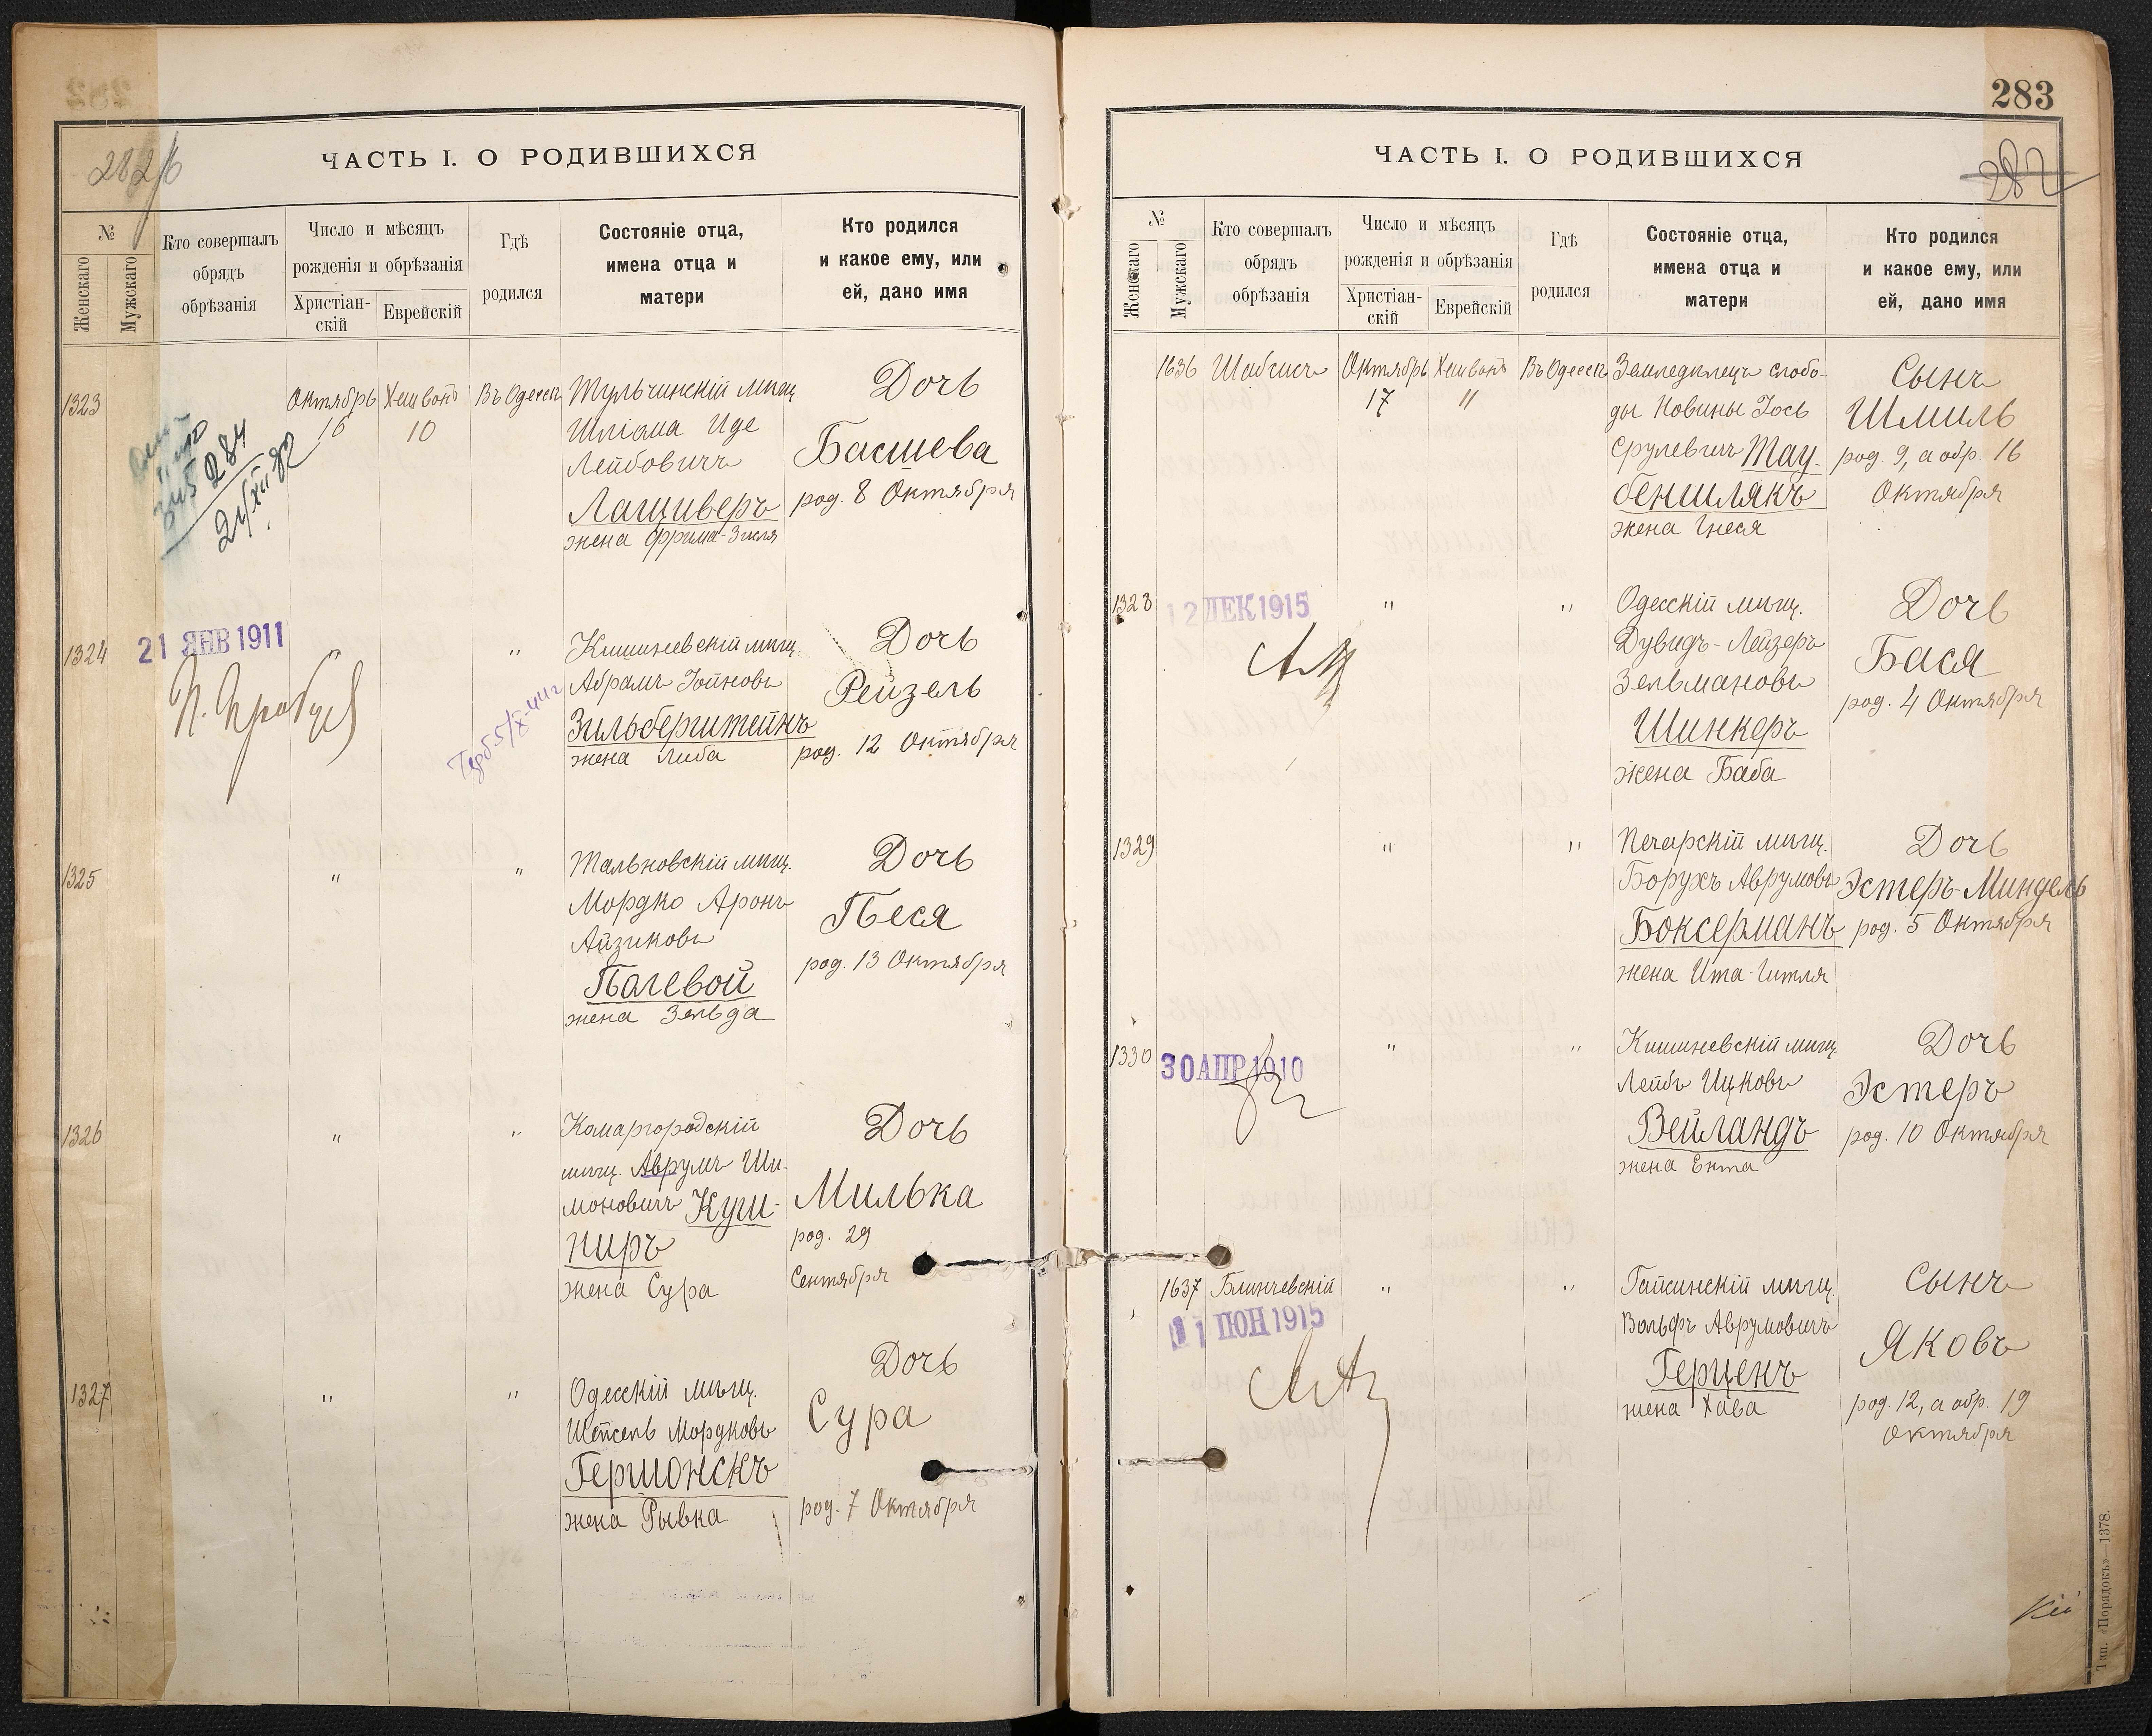 282
ЧАСТЬ I. О РОДИВШИХСЯ
№
Женскаго
Мужскаго
Кто совершалъ
обрядъ
обрѣзанія
Число и мѣсяцъ
рожденія и обрѣзанія
Христіан-
скій
Еврейскій
Гдѣ
родился
Состояніе отца,
имена отца и
матери
Кто родился
и какое ему, или
ей, дано имя
1323
284
Октябрь
16
Хешвонъ
10
Въ Одессѣ
Тульчинскій мѣщ.
Шліома Иде
Лейбовичъ
Лащиверъ
жена Фрима-Зисля
Дочь
Басшева
род. 8 Октября
1324
21 ЯНВ 1911
"
"
Кишиневскій мѣщ.
Абрамъ Іойновъ
Зильберштейнъ
жена Либа
Дочь
Рейзель
род. 12 Октября
1325
"
"
Тальновскій мѣщ.
Мордко Аронъ
Айзиковъ
Палевой
жена Зельда
Дочь
Песя
род. 13 Октября
1326
"
"
Комаргородскій
мѣщ. Аврумъ Ши-
моновичъ Куш-
ниръ
жена Сура
Дочь
Милька
род. 29
Сентября
1327
"
"
Одесскій мѣщ.
Шепсель Мордковъ
Гершонскъ
жена Рывка
Дочь
Сура
род. 7 Октября
283
282
ЧАСТЬ I. О РОДИВШИХСЯ
№
Женскаго
Мужскаго
Кто совершалъ
обрядъ
обрѣзанія
Число и мѣсяцъ
рожденія и обрѣзанія
Христіан-
скій
Еврейскій
Гдѣ
родился
Состояніе отца,
имена отца и
матери
Кто родился
и какое ему, или
ей, дано имя
1636
Шабсисъ
Октябрь
17
Хешвонъ
11
Въ Одессѣ
Земледѣлецъ слобо-
ды Новины Іось
Срулевичъ Тау-
беншлякъ
жена Гнеся
Сынъ
Шмиль
род. 9, а обр. 16
Октября
1328
12 ДЕК 1915
"
"
Одесскій мѣщ.
Дувидъ-Лейзеръ
Зельмановъ
Шинкеръ
жена Баба
Дочь
Бася
род. 4 Октября
1329
"
"
Печарскій мѣщ.
Борухъ Аврумовъ
Боксерманъ
жена Ита-Гитля
Дочь
Эстеръ-Миндель
род. 5 Октября
1330
30 АПР 1910
"
"
Кишиневскій мѣщ.
Лейбъ Ицковъ
Вейландъ
жена Ента
Дочь
Эстеръ
род. 10 Октября
1637
Блинчевскій
"
"
Гайсинскій мѣщ.
Вольфъ Аврумовичъ
Герценъ
жена Хава
Сынъ
Яковъ
род. 12, а обр. 19
Октября
Тип. «Порядокъ»—1378.